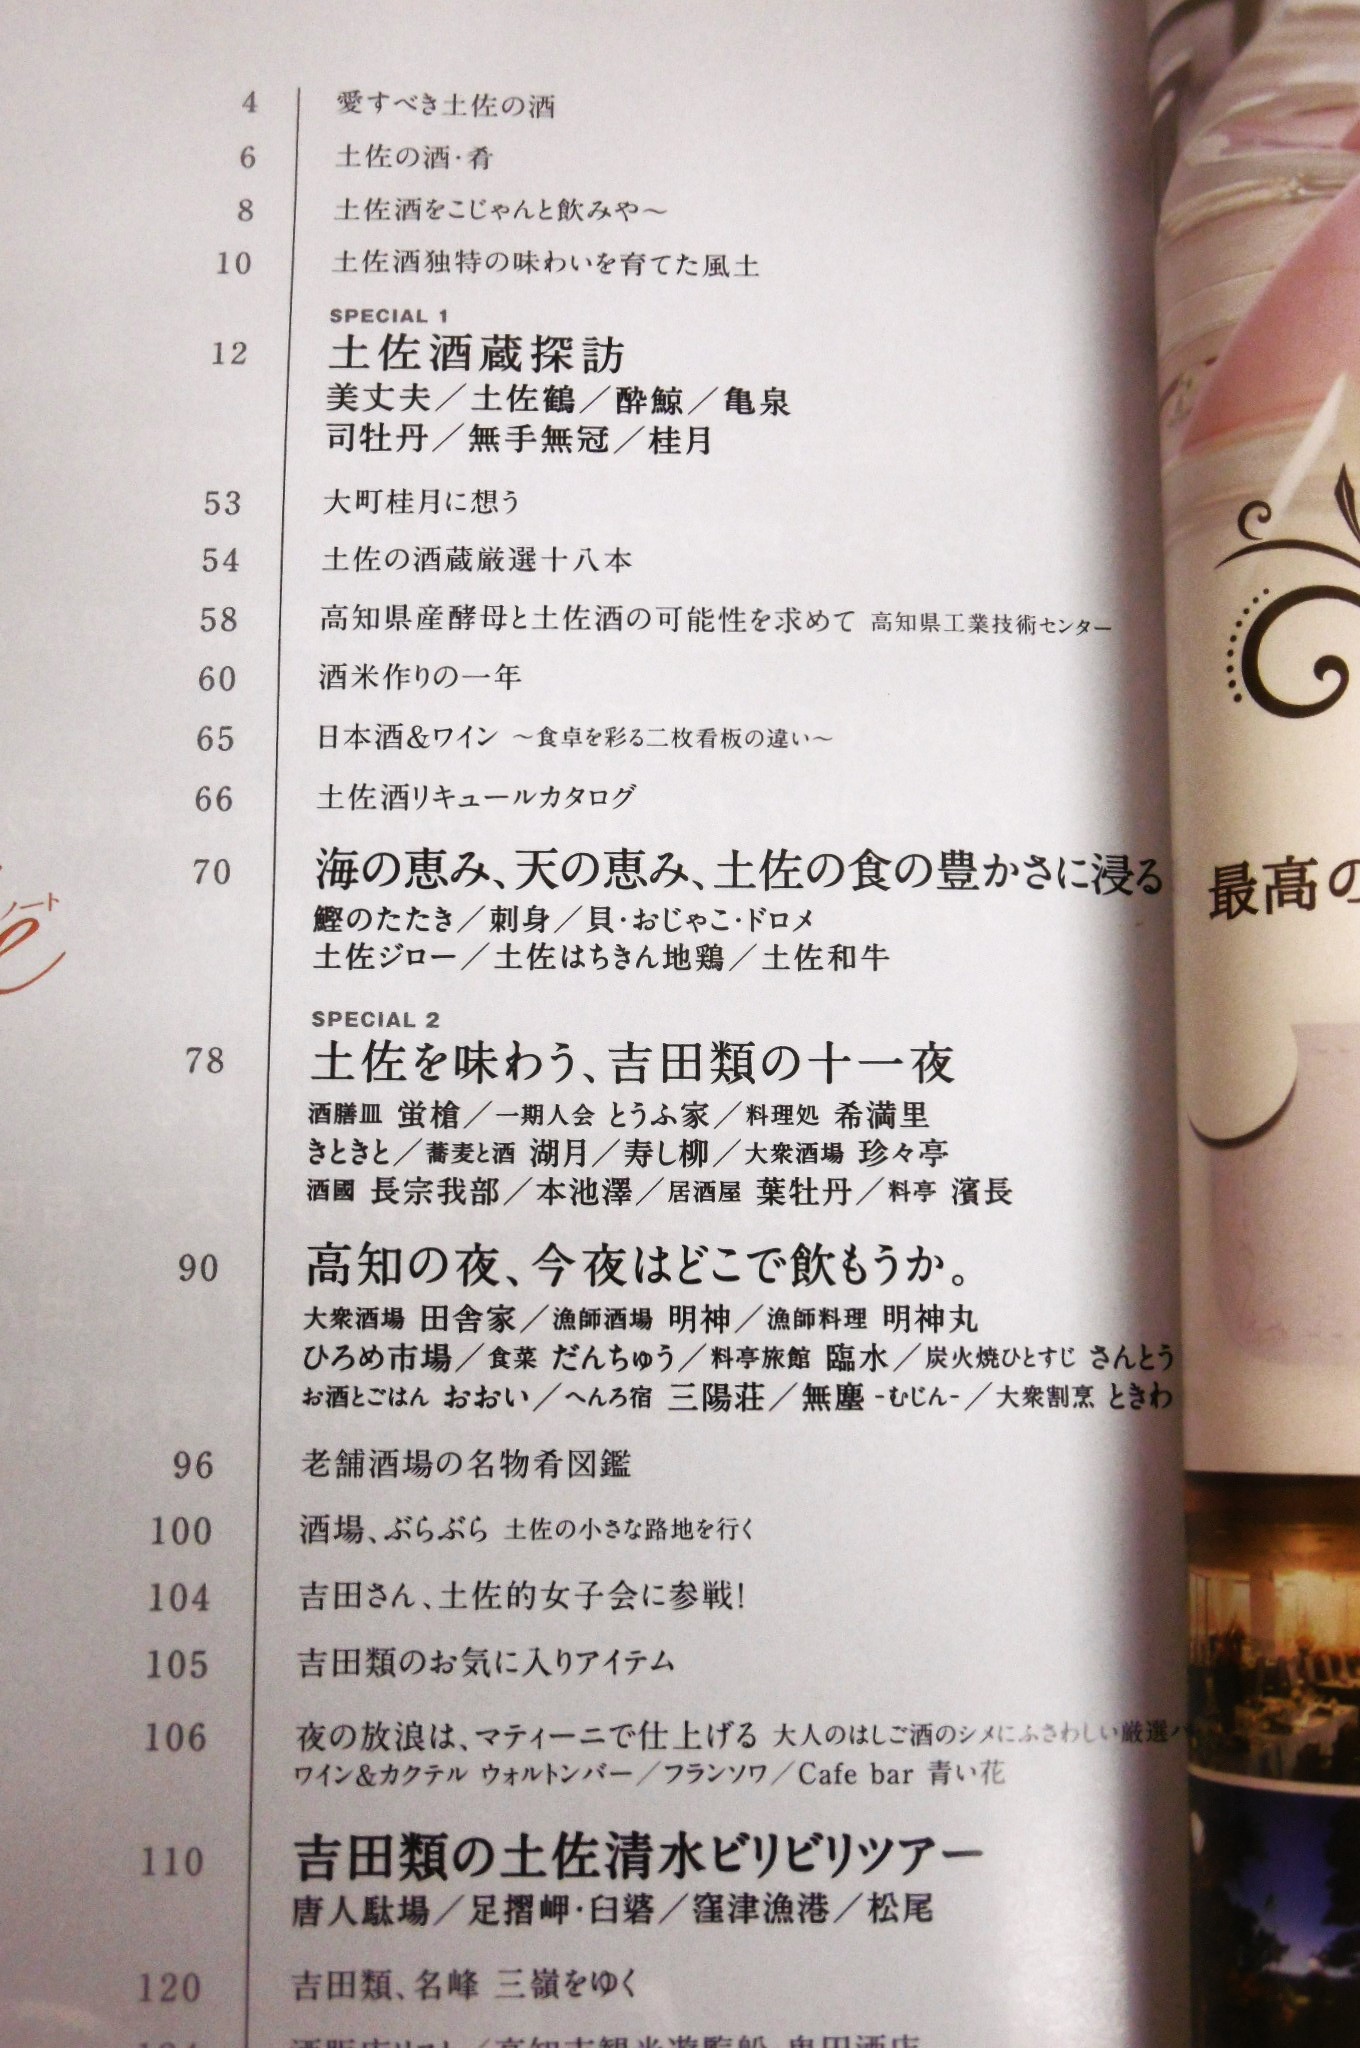 4 愛すべき土佐の酒
6 土佐の酒・肴
8 土佐酒をこじゃんと飲みや〜
10 土佐酒独特の味わいを育てた風土
SPECIAL 1
12 土佐酒蔵探訪
美丈夫／土佐鶴／酔鯨／亀泉
司牡丹／無手無冠／桂月
53 大町桂月に想う
54 土佐の酒蔵厳選十八本
58 高知県産酵母と土佐酒の可能性を求めて 高知県工業技術センター
60 酒米作りの一年
65 日本酒&ワイン 〜食卓を彩る二枚看板の違い〜
66 土佐酒リキュールカタログ
70 海の恵み、天の恵み、土佐の食の豊かさに浸る
鰹のたたき／刺身／貝・おじゃこ・ドロメ
土佐ジロー／土佐はちきん地鶏／土佐和牛
SPECIAL 2
78 土佐を味わう、吉田類の十一夜
酒膳皿 蛍槍／一期人会 とうふ家／料理処 希満里
きときと／蕎麦と酒 湖月／寿し柳／大衆酒場 珍々亭
酒國 長宗我部／本池澤／居酒屋 葉牡丹／料亭 濱長
90 高知の夜、今夜はどこで飲もうか。
大衆酒場 田舎家／漁師酒場 明神／漁師料理 明神丸
ひろめ市場／食菜 だんちゅう／料亭旅館 臨水／炭火焼ひとすじ さんとう
お酒とごはん おおい／へんろ宿 三陽荘／無塵 -むじん-／大衆割烹 ときわ
96 老舗酒場の名物肴図鑑
100 酒場、ぶらぶら 土佐の小さな路地を行く
104 吉田さん、土佐的女子会に参戦!
105 吉田類のお気に入りアイテム
106 夜の放浪は、マティーニで仕上げる 大人のはしご酒のシメにふさわしい厳選バ
ワイン&カクテル ウォルトンバー／フランソワ／Cafe bar 青い花
110 吉田類の土佐清水ビリビリツアー
唐人駄場／足摺岬・臼碆／窪津漁港／松尾
120 吉田類、名峰 三嶺をゆく
ノート
最高の